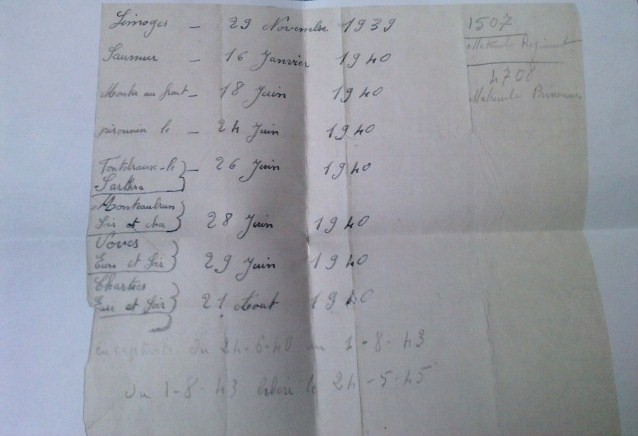 Limoges - 29 Novembre 1939
1507
Matricule Régiment
Saumur - 16 Janvier 1940
4708
Matricule
Monte au front - 18 Juin 1940
le - 24 Juin 1940
26 Juin 1940
Sarthe
28 Juin 1940
Voves
Eure et Loir 29 Juin 1940
Chartres
Eure et Loir 21 Aout 1940
du 24-6-40 au 1-8-43
du 1-8-43 libéré le 24-5-45